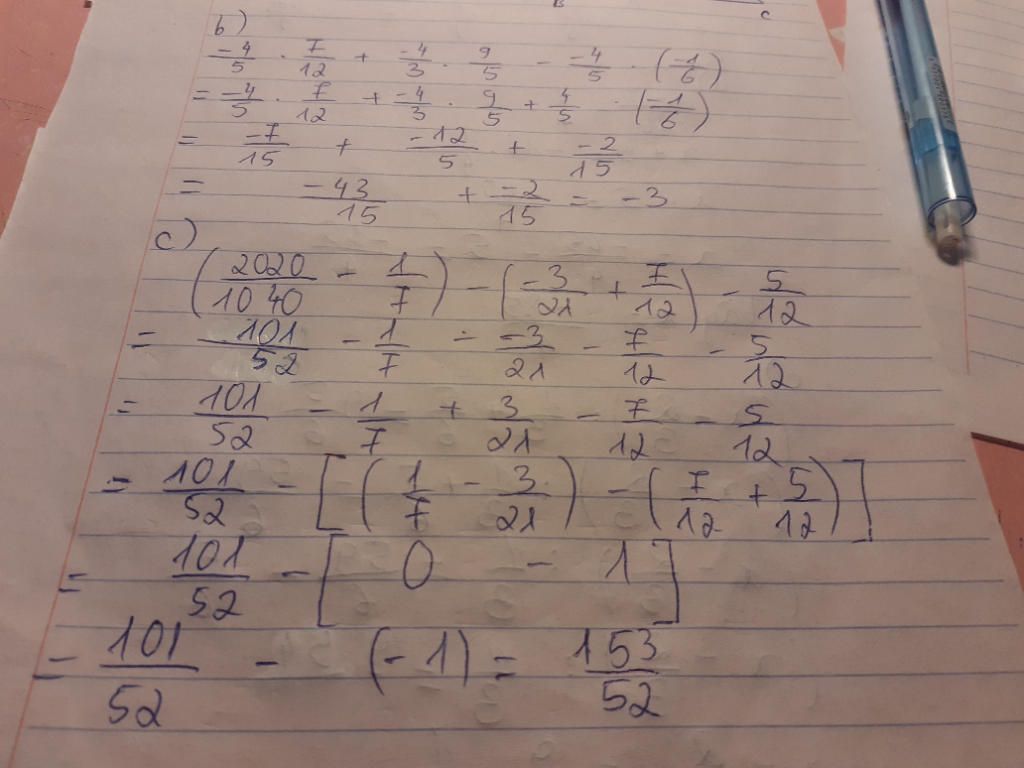 B c
b)
-4/5 · 7/12 + -4/3 · 9/5 - -4/5 · (-1/6)
= -4/5 · 7/12 + -4/3 · 9/5 + 4/5 · (-1/6)
= -7/15 + -12/5 + -2/15
= -43/15 + -2/15 = -3
c)
(2020/1040 - 1/7) - (-3/21 + 7/12) - 5/12
= 101/52 - 1/7 - -3/21 - 7/12 - 5/12
= 101/52 - 1/7 + 3/21 - 7/12 - 5/12
= 101/52 - [(1/7 - 3/21) - (7/12 + 5/12)]
= 101/52 - [0 - 1]
= 101/52 - (-1) = 153/52